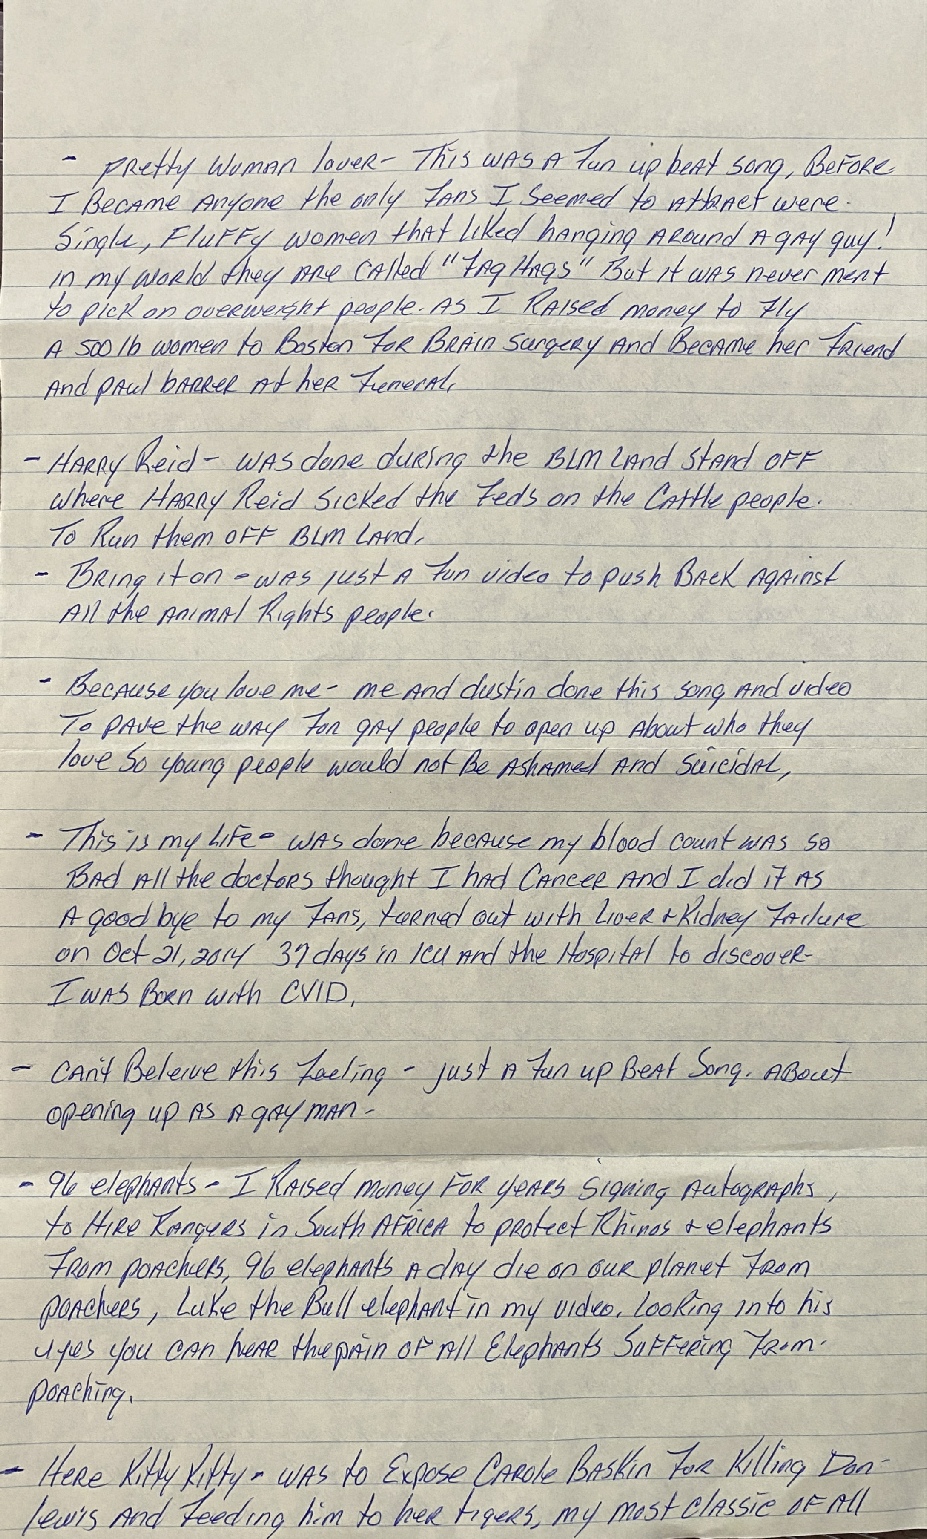 - Pretty Woman lover- This was a fun up beat song, Before
I Became Anyone the only fans I seemed to attract were.
Single, Fluffy women that liked hanging around a gay guy!
in my world they are called "Fag Hags" But it was never ment
to pick on overweight people. As I Raised money to fly
A 500 lb women to Boston for Brain surgery And Became her friend
And paul barrer at her funeral,
- Harry Reid - was done during the BLM Land stand off
where Harry Reid sicked the feds on the Cattle people.
To Run them off BLM Land,
- Bring it on - was just a fun video to push Back Against
All the animal Rights people.
- Because you love me - me and dustin done this song and video
To pave the way for gay people to open up about who they
love so young people would not Be Ashamed And suicidal,
- This is my life - was done because my blood count was so
Bad all the doctors thought I had Cancer and I did it as
A good bye to my fans, turned out with Liver & Kidney failure
on Oct 21, 2014 37 days in ICU and the Hospital to discover-
I was Born with CVID.
- Can't Beleive this feeling - just a fun up Beat Song. About
opening up as a gay man -
- 96 elephants - I Raised money for years signing autographs,
to Hire Rangers in South Africa to protect Rhinos & elephants
from poachers, 96 elephants a day die on our planet from
poachers, Luke the Bull elephant in my video. Looking into his
eyes you can hear the pain of all Elephants suffering from.
poaching.
- Here Kitty Kitty - was to Expose Carole Baskin for Killing Don-
Lewis and feeding him to her tigers, my most classic of all